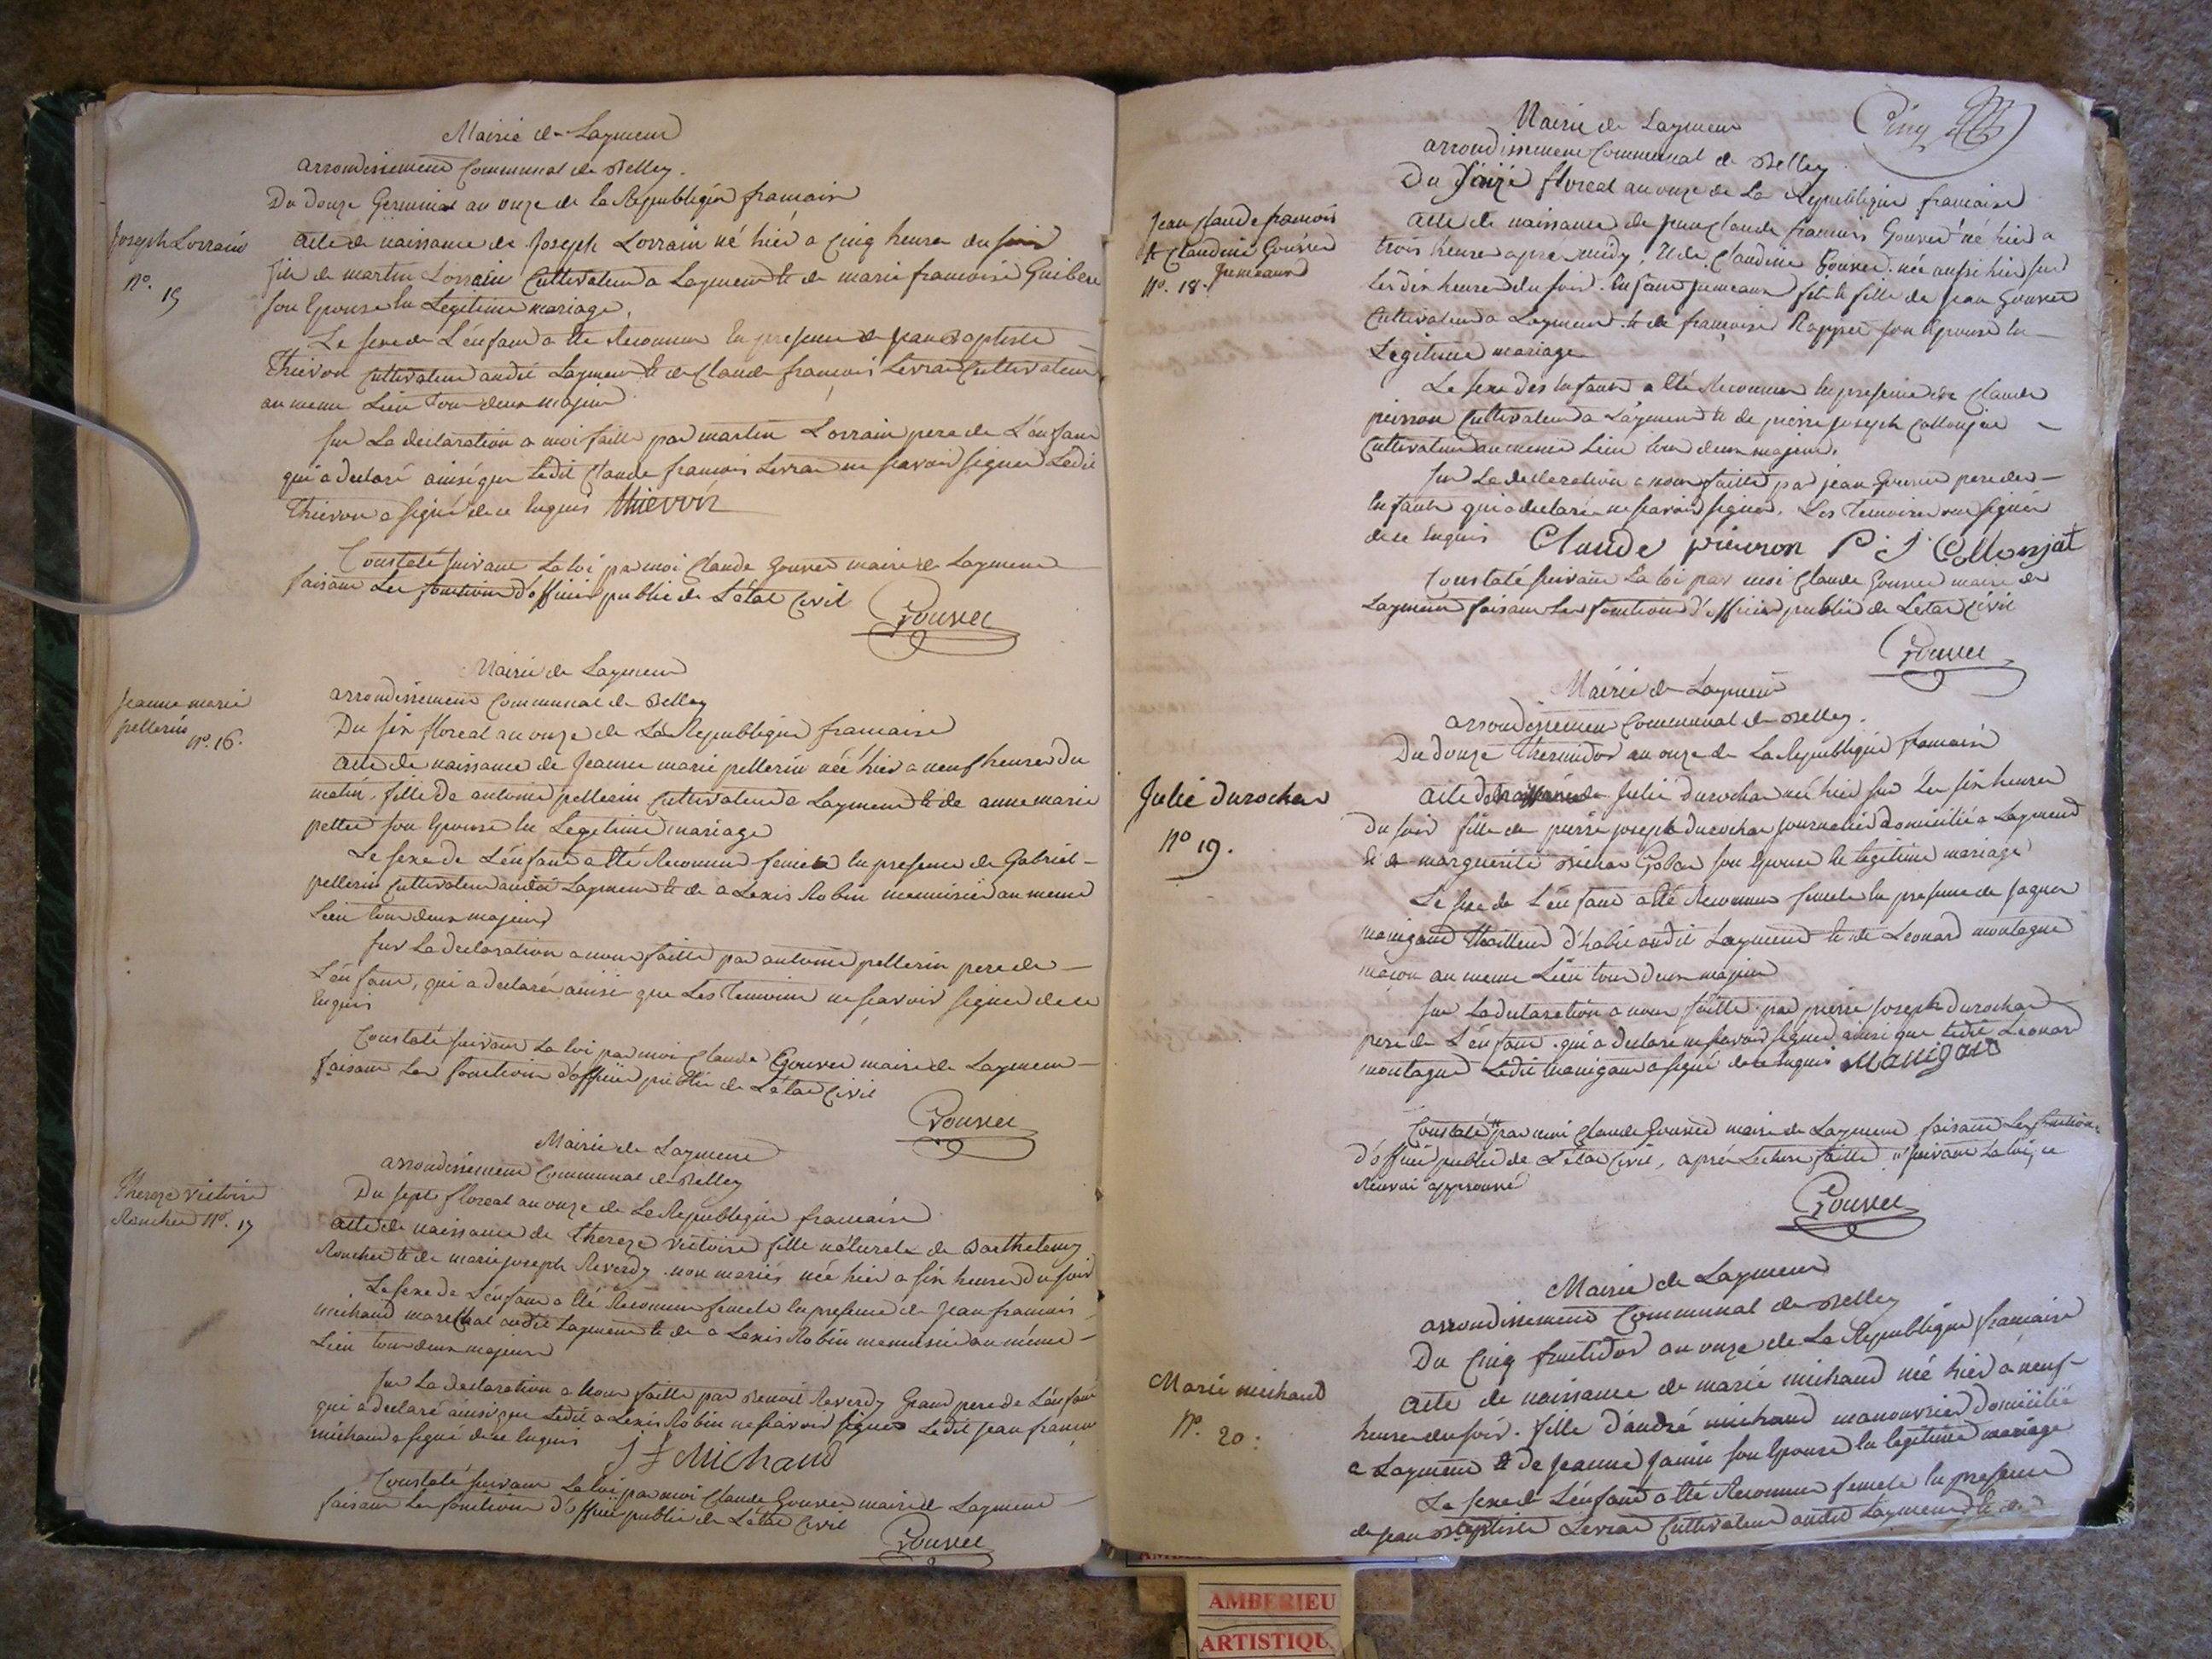 Mairie de Laymeur
arrondissement Communal de Belley.
Du Douze Germinal an onze de la Republique francaise
Joseph Lorrain
n°. 15
Acte de naissance de Joseph Lorrain né hier a Cinq heures du soir
fils de martin Lorrain Cultivateur a Laymeur et de marie francoise Guibere
son Epouse En Legitime mariage,
Le sexe de L'enfant a Eté Reconnu En presence de Jean Baptiste
Thievon Cultivateur audit Laymeur et de Claude francois Levrat Cultivateur
au meme Lieu tous deux majeurs
Sur La declaration a moi faitte par martin Lorrain pere de L'enfant
qui a declaré ainsi que Ledit Claude francois Levrat ne scavoir signer Ledit
Thievon a signé de ce Enquis thievon
Constaté suivant La loi par moi Claude Gouvet maire de Laymeur
faisant Les fonctions d'officier public de L'état Civil
Gouvet
Mairie de Laymeur
arrondissement Communal de Belley
Jeanne marie
pellerin n°. 16.
Du six floreal an onze de La Republique francaise
Acte de naissance de Jeanne marie pellerin née hier a neuf heures du
matin, fille de antoine pellerin Cultivateur a Laymeur et de anne marie
pettet son Epouse En Legitime mariage
Le sexe de L'enfant a Eté Reconnu femele En presence de Gabriel
pellerin Cultivateur audit Laymeur et de aLexis Robin menuisier au meme
Lieu tous deux majeurs
Sur La declaration a nous faitte par antoine pellerin pere de
L'enfant, qui a declaré ainsi que Les temoins ne scavoir signer de ce
Enquis
Constaté suivant La loi par moi Claude Gouvet maire de Laymeur
faisant Les fonctions d'officier public de L'état Civil
Gouvet
Mairie de Laymeur
arrondissement Communal de Belley
Du sept floreal an onze de La Republique francaise
Thereze victoire
Roucher n°. 17
Acte de naissance de thereze victoire fille naturele de Barthelemy
Roucher et de marie joseph Reverdy non mariés née hier a six heures du soir
Le sexe de L'enfant a Eté Reconnu femele En presence de Jean francois
michaud marechal audit Laymeur et de aLexis Robin menuisier au même
Lieu tous deux majeurs
Sur La declaration a Nous faitte par Benoit Reverdy Grand pere de L'enfant
qui a declaré ainsi que Ledit aLexis Robin ne scavoir signer Ledit Jean francois
michaud a signé de ce Enquis
J f Michaud
Constaté suivant La loi par moi Claude Gouvet maire de Laymeur
faisant Les fonctions d'officier public de L'état Civil
Gouvet
Cinq
Mairie de Laymeur
arrondissement Communal de Belley.
Du seize floreal an onze de La Republique francaise
Jean Claude francois
et Claudine Gouvet
Jumeaux
n°. 18.
Acte de naissance de Jean Claude francois Gouvet né hier a
trois heures apres midy, Et de Claudine Gouvet née aussi hier sur
Les dix heures du soir. Enfans jumeaux fils et fille de Jean Gouvet
Cultivateur a Laymeur et de francoise Rappet son Epouse En
Legitime mariage
Le sexe des Enfants a Eté Reconnu En presence de Claude
pierron Cultivateur a Laymeur et de pierre joseph Collonjat
Cultivateur au meme Lieu tous deux majeurs.
Sur La declaration a nous faitte par jean Gouvet pere des
Enfants qui a declaré ne scavoir signer. Les temoins ont signés
de ce Enquis Claude pierron P. J Collonjat
Constaté suivant La loi par moi Claude Gouvet maire de
Laymeur faisant Les fonctions d'officier public de L'état Civil
Gouvet
Mairie de Laymeur
arrondissement Communal de Belley.
Du douze thermidor an onze de La Republique francaise
Julie durochat
N° 19.
Acte de naissance de Julie durochat née hier sur Les six heures
du soir fille de pierre joseph durochat journalier domicilié a Laymeur
et de marguerite son Epouse En legitime mariage
Le sexe de L'enfant a Eté Reconnu femele En presence de Jaques
manigand tailleur d'habit audit Laymeur et de Leonard montagne
macon au meme Lieu tous deux majeurs
Sur La declaration a nous faitte par pierre joseph durochat
pere de L'enfant. qui a declaré ne scavoir signer ainsi que Ledit Leonard
montagne Ledit manigand a signé de ce Enquis Manigand
Constaté par moi Claude Gouvet maire de Laymeur faisant Les fonctions
d'officier public de L'état Civil, après Lecture faitte suivant La loi, ce
Renvoi approuvé
Gouvet
Mairie de Laymeur
arrondissement Communal de Belley
Du Cinq fructidor an onze de La Republique francaise
Marie michaud
N°. 20.
Acte de naissance de marie michaud née hier a neuf
heures du soir. fille d'andré michaud manouvrier domicilié
a Laymeur et de Jeanne Janin son Epouse En legitime mariage
Le sexe de L'enfant a Eté Reconnu femele En presence
de Jean Baptiste Levrat Cultivateur audit Laymeur et de
AMBERIEU
ARTISTIQU